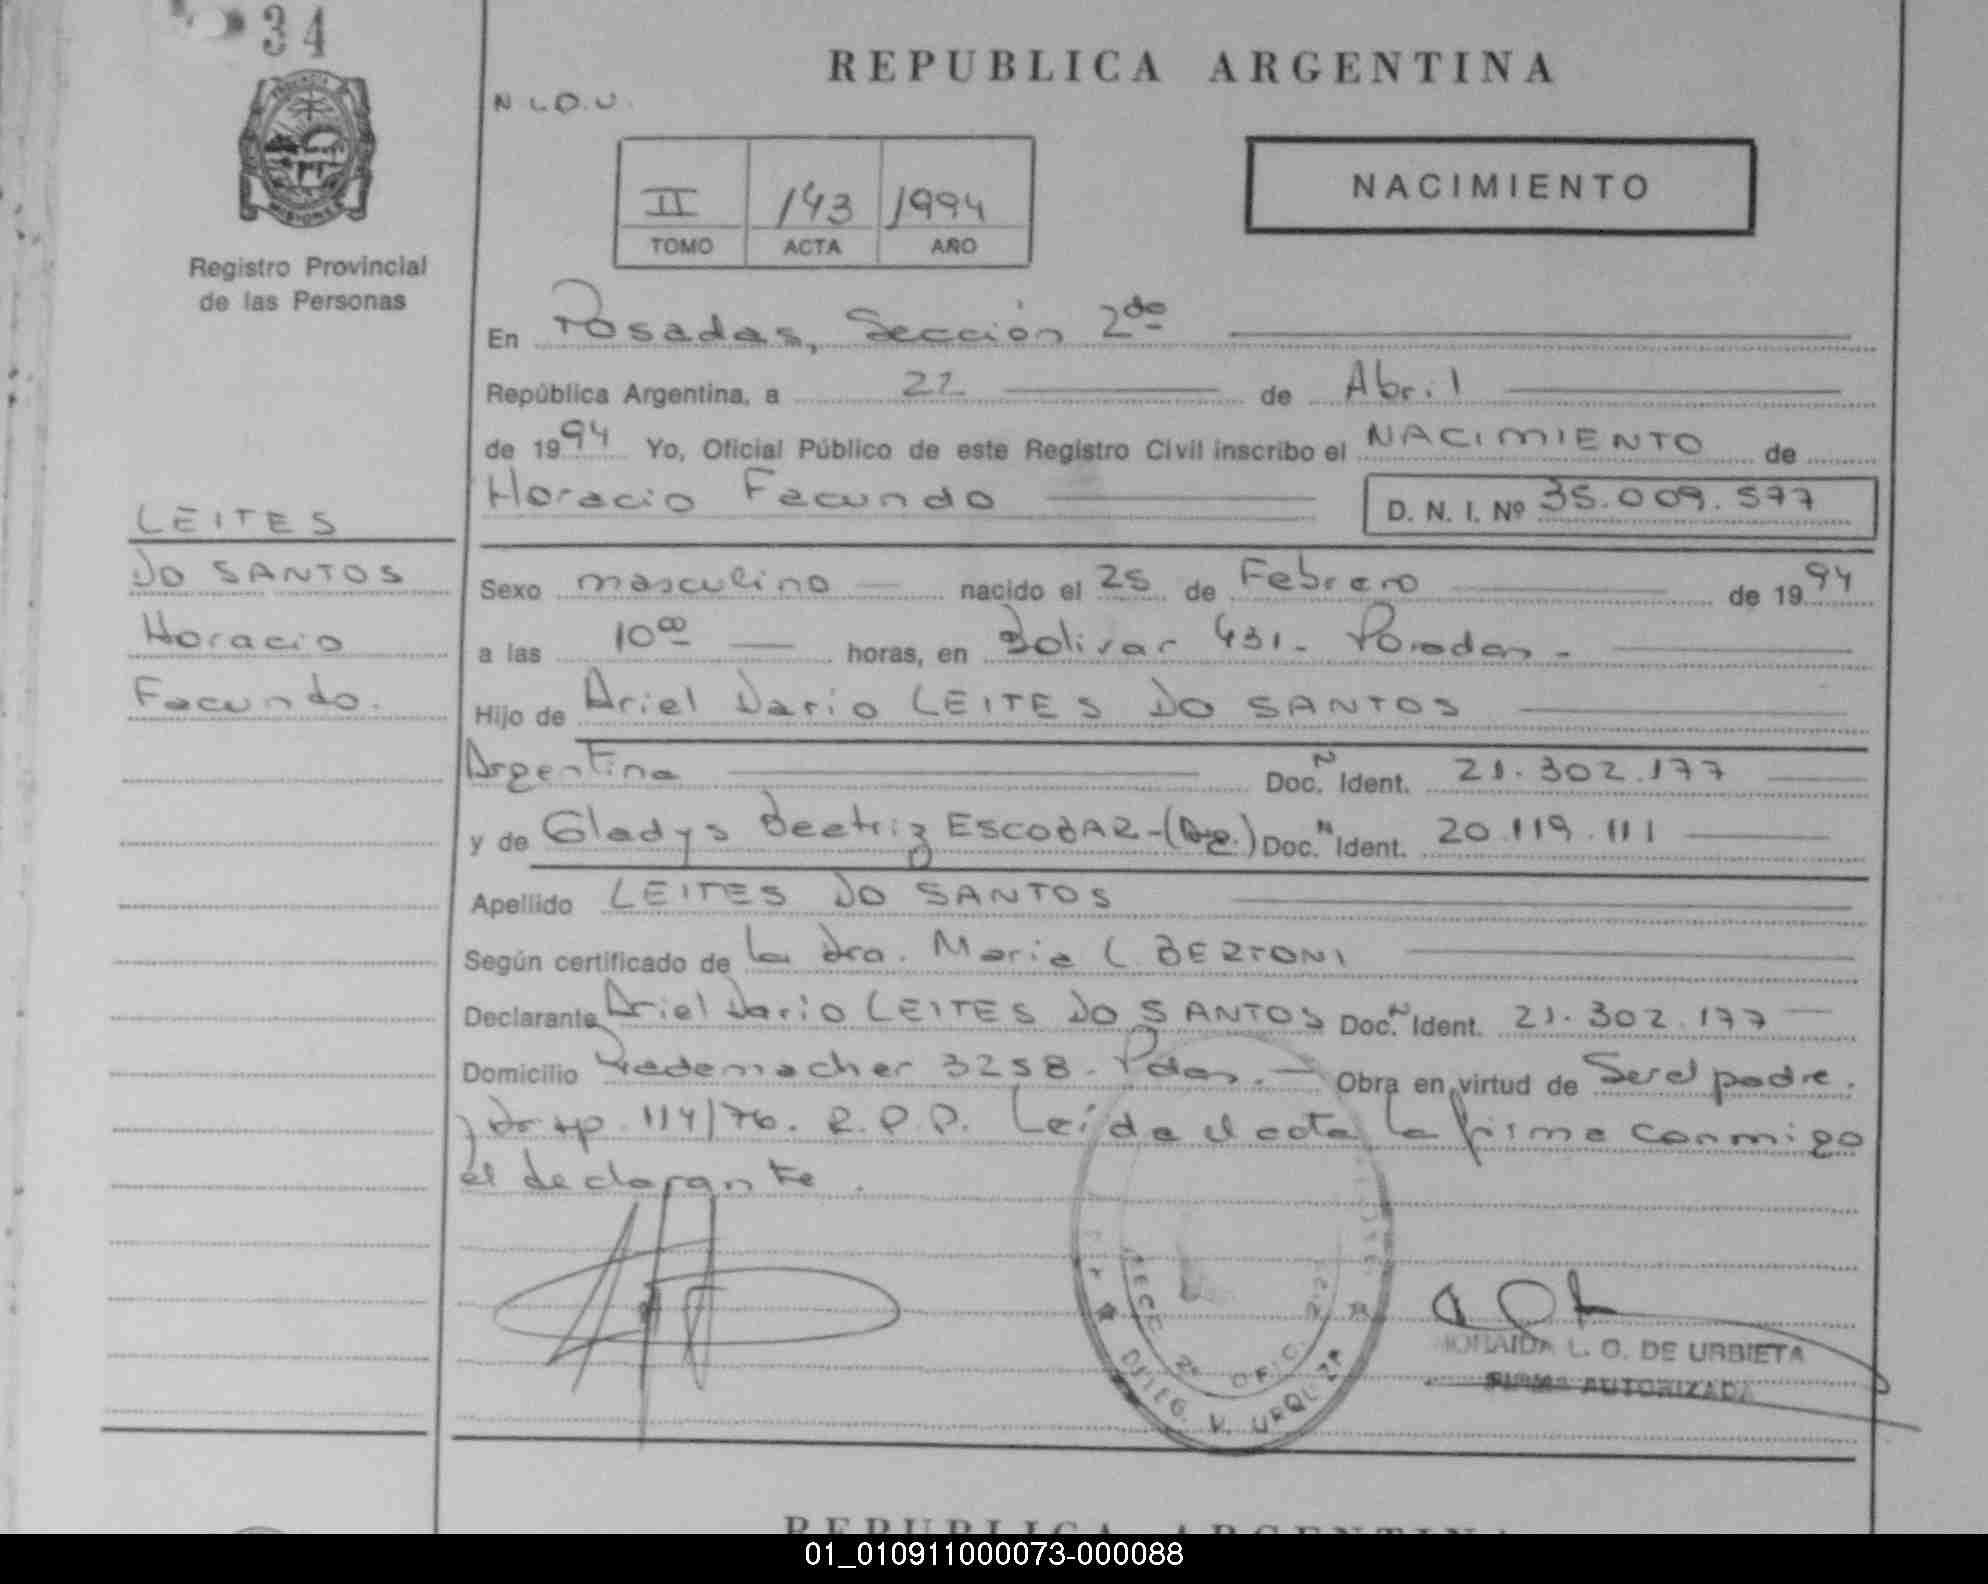 34
REPUBLICA ARGENTINA
PROVINCIA
MISIONES
N.L.D.U.
II 143 1994
TOMO ACTA AÑO
NACIMIENTO
Registro Provincial
de las Personas
En Posadas, Sección 2da
República Argentina, a 22 de Abril
de 1994 Yo, Oficial Público de este Registro Civil inscribo el NACIMIENTO de
Horacio Facundo D. N. I. Nº 35.009.577
LEITES
DO SANTOS
Horacio
Facundo.
Sexo masculino nacido el 25 de Febrero de 1994
a las 10 00 horas, en Bolivar 431 - Posadas -
Hijo de Ariel Dario LEITES DO SANTOS
Argentina Doc. N Ident. 21.302.177
y de Gladys Beatriz ESCOBAR - (Arg.) Doc. N Ident. 20.119.111
Apellido LEITES DO SANTOS
Según certificado de la Dra. Maria C. BERTONI
Declarante Ariel Dario LEITES DO SANTOS Doc. N Ident. 21.302.177
Domicilio Rademacher 3258. Pdas. - Obra en virtud de Ser el padre.
y Disp. 114/76. R.P.P. Leída el acta la firma conmigo
el declarante.
SECC. 2ª OFIC.
DELEG. V. URQUIZA
L. O. DE URBIETA
FIRMA AUTORIZADA
REPUBLICA ARGENTINA
01_010911000073-000088